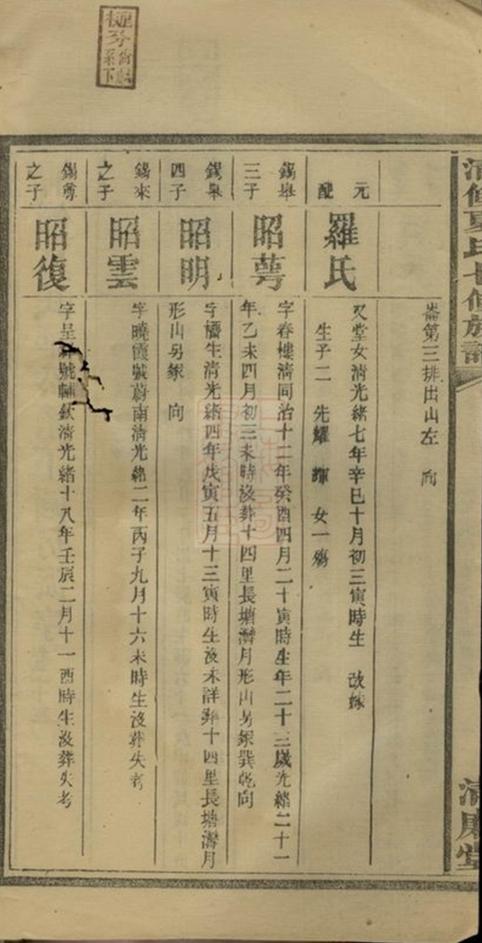 夏氏七修族譜
崙第三排出山左 向
元配
羅氏
又堂女清光緒七年辛巳十月初三寅時生 改嫁
生子二 先耀 輝 女一殤
錫舉三子
昭萼
字春樓清同治十二年癸酉四月二十寅時生年二十三歲光緒二十一
年乙未四月初三未時沒葬十四里長塘灣月形山另冢巽乾向
錫舉四子
昭明
生清光緒四年戊寅五月十三寅時生沒未詳葬十四里長塘灣月
形山另冢 向
錫來之子
昭雲
字曉霞號蔚南清光緒二年丙子九月十六未時生沒葬失考
錫尊之子
昭復
字呈 號輔 清光緒十八年壬辰二月十一酉時生沒葬失考